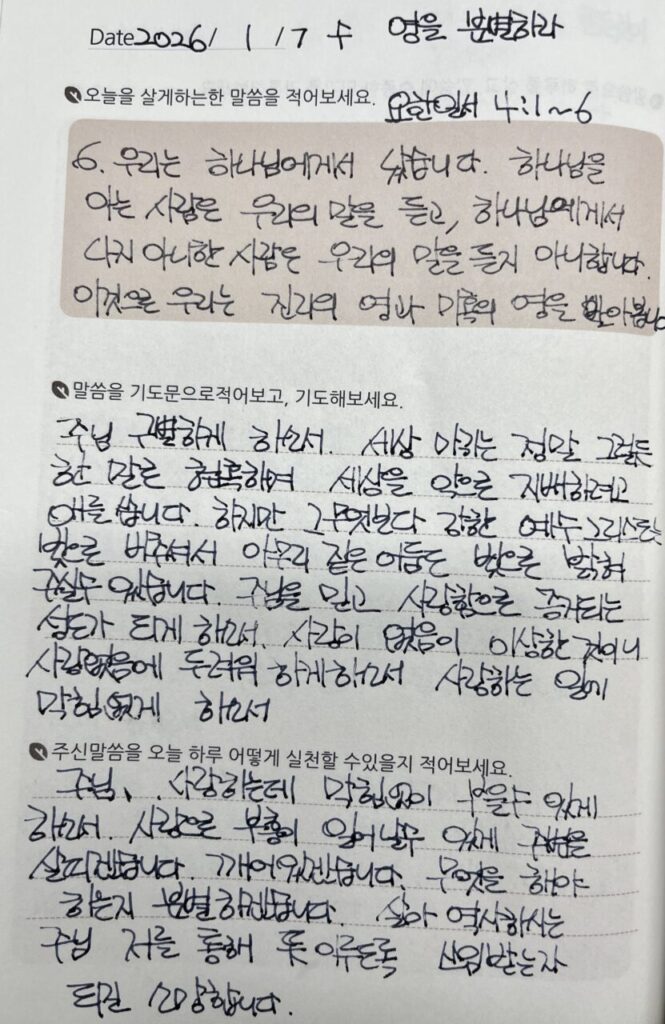 Date 2026/ 1 / 7 수 영을 분별하라
오늘을 살게하는한 말씀을 적어보세요. 요한일서 4:1~6
6. 우리는 하나님에게서 났습니다. 하나님을
아는 사람은 우리의 말을 듣고, 하나님에게서
나지 아니한 사람은 우리의 말을 듣지 아니합니다.
이것으로 우리는 진리의 영과 미혹의 영을 알아봅니다
말씀을 기도문으로적어보고, 기도해보세요.
주님 구별하게 하소서. 세상 마귀는 정말 그럴듯
한 말로 현혹하며 세상을 악으로 지배하려고
애를 씁니다. 하지만 그 무엇보다 강한 예수 그리스도는
빛으로 비추셔서 아무리 짙은 어둠도 빛으로 밝혀
주실수 있습니다. 주님을 믿고 사랑함으로 증거되는
성도가 되게 하소서. 사랑이 없음이 이상한 것이니
사랑없음에 두려워 하게하소서 사랑하는 일에
막힘없게 하소서
주신말씀을 오늘 하루 어떻게 실천할 수있을지 적어보세요.
주님, 사랑하는데 막힘없이 부을수 있게
하소서. 사랑으로 부흥이 일어날수 있게 주변을
살피겠습니다. 깨어있겠습니다. 무엇을 해야
하는지 분별하겠습니다. 살아 역사하시는
주님 저를 통해 뜻 이루도록 쓰임받는자
되길 소망합니다.